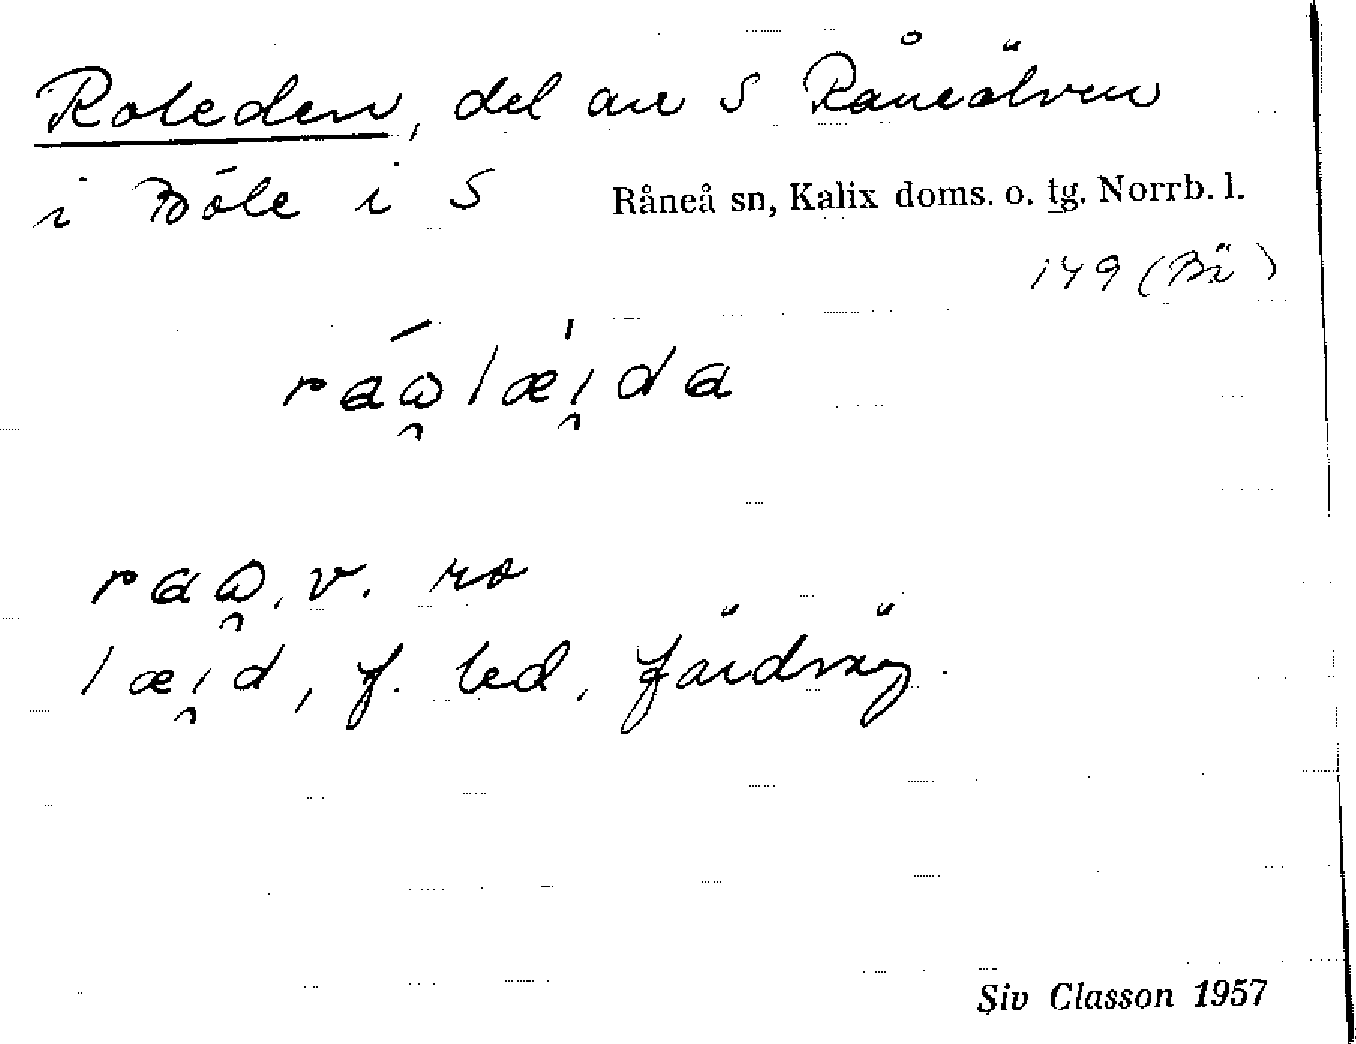 Roleden, del av S Råneälven
i Böle i S Råneå sn, Kalix doms. o. tg. Norrb. l.
149 (Bä)
raώ̯læi̯̍da
raω̯, v. ro
læi̯d, f. led, färdväg.
Siv Classon 1957